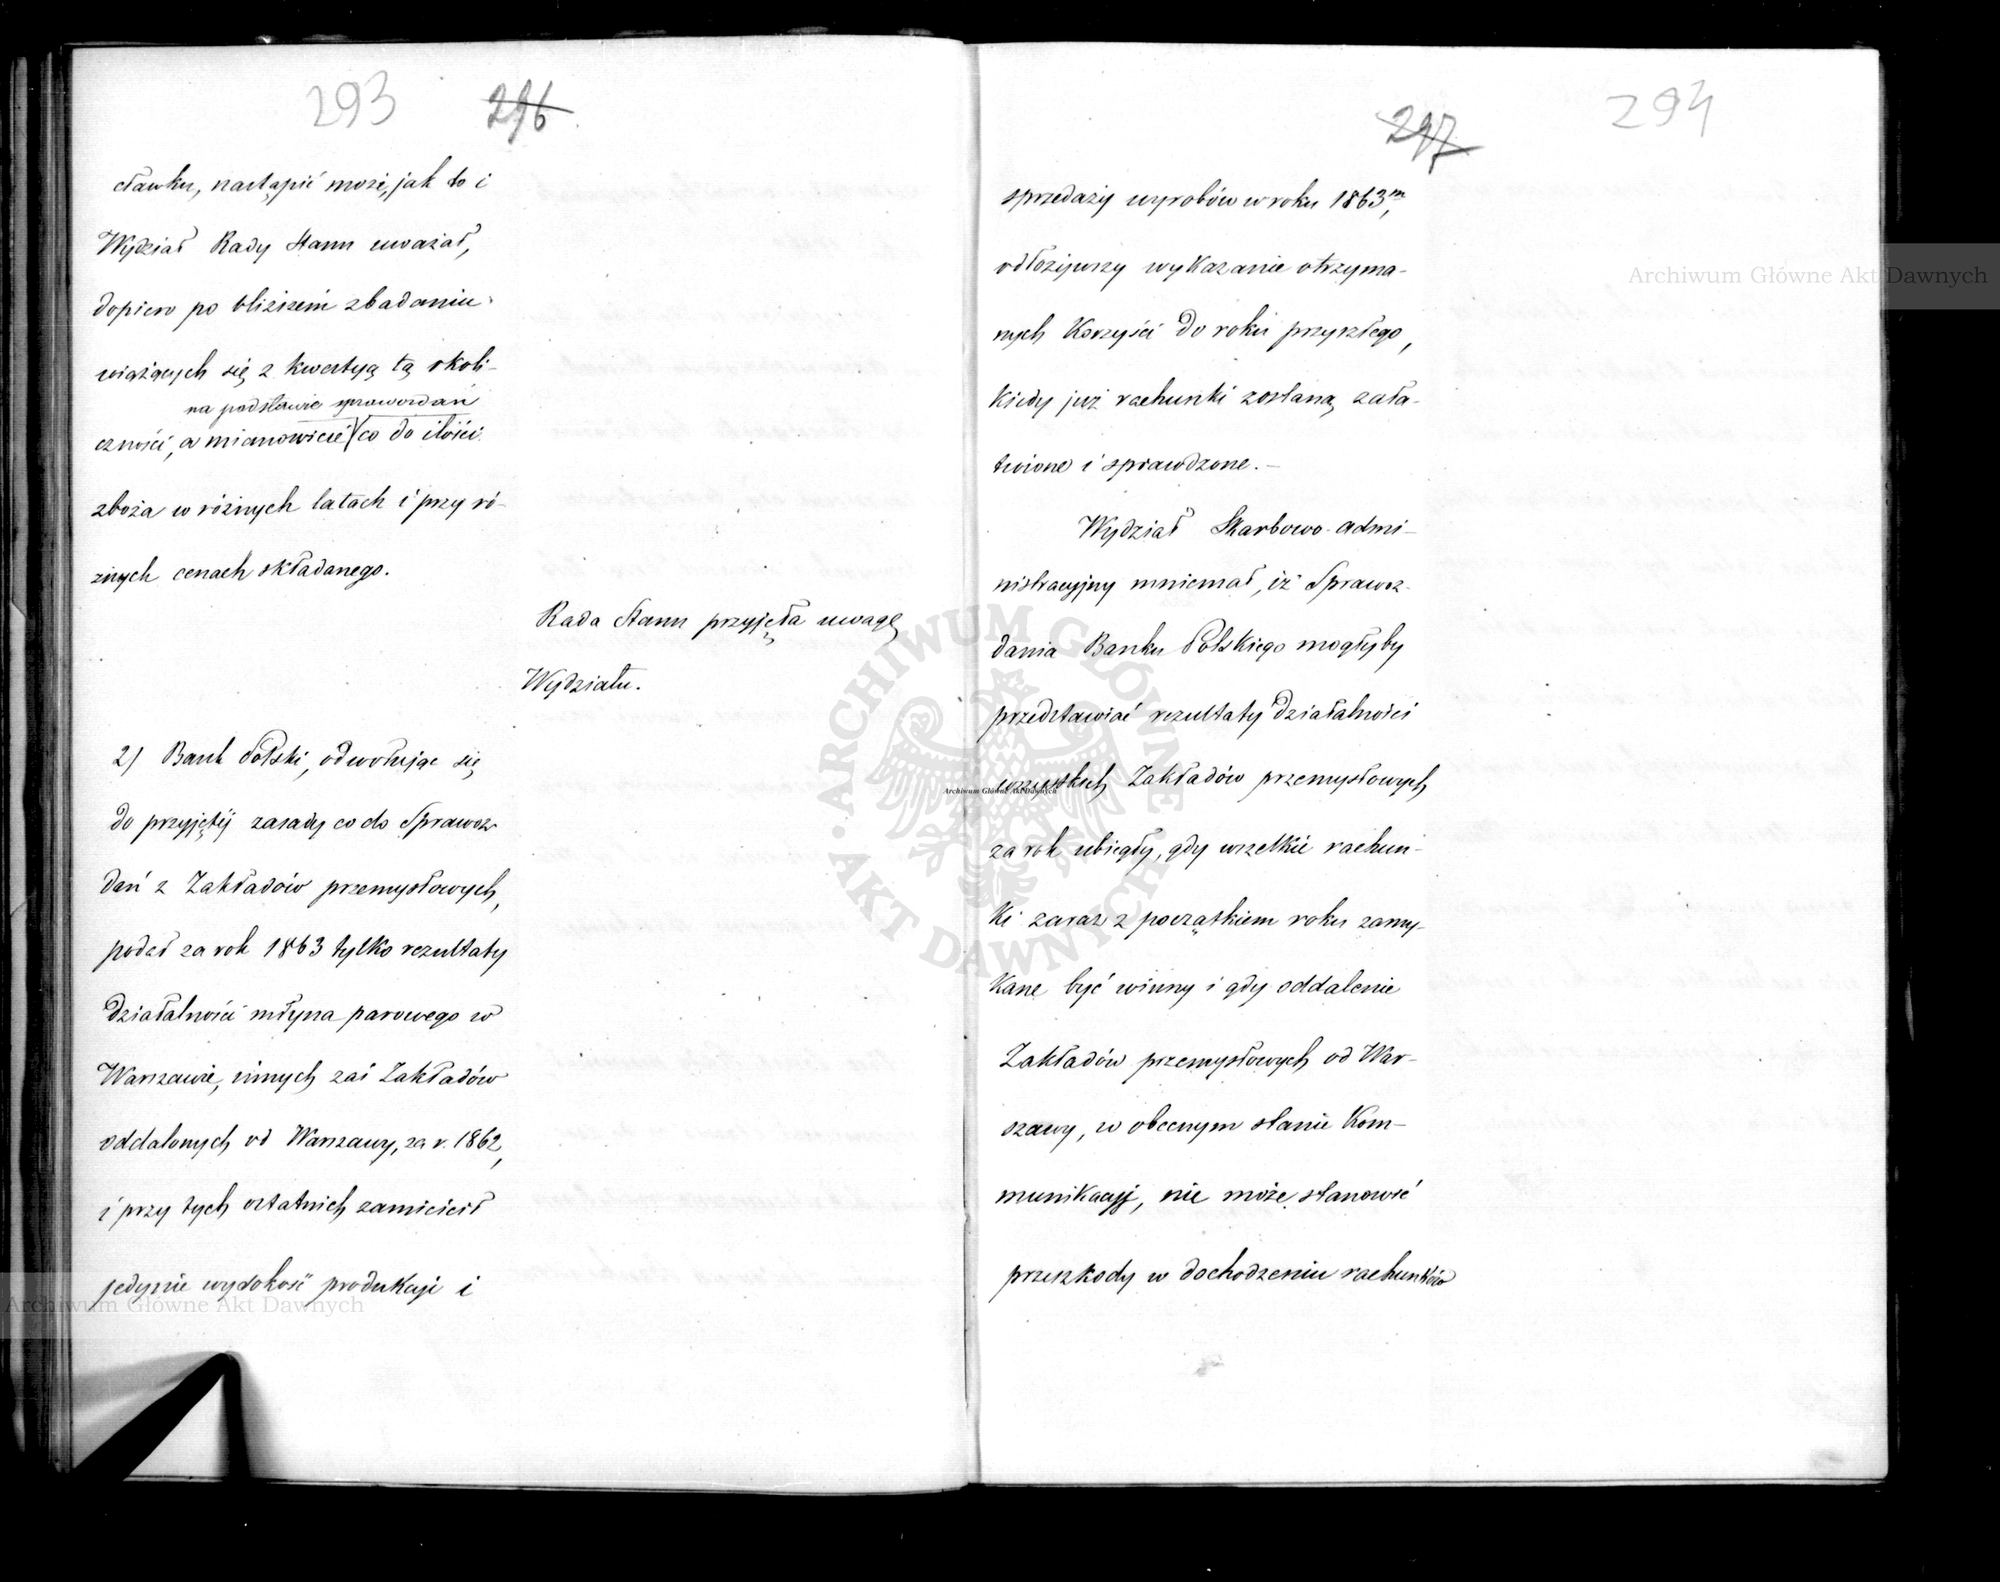 293 296
cławku, nastąpić może, jak to i
Wydział Rady Stanu uważał,
dopiero po bliższém zbadaniu
wiążących się z kwestyą tą okoli-
na podstawie sprawozdań
czności, a mianowicie co do ilości
zboża w różnych latach i przy ró-
żnych cenach składanego.
Rada Stanu przyjęła uwagę
Wydziału.
2) Bank Polski, odwołując się
do przyjętéj zasady co do Sprawoz-
dań z Zakładów przemysłowych,
podał za rok 1863 tylko rezultaty
działalności młyna parowego w
Warszawie, innych zaś Zakładów
oddalonych od Warszawy, za r. 1862,
i przy tych ostatnich zamieścił
jedynie wysokość produkcji i
297 294
sprzedaży wyrobów w roku 1863m,
odłożywszy wykazanie otrzyma-
nych Korzyści do roku przyszłego,
kiedy już rachunki zostaną zała-
twione i sprawdzone. –
Wydział Skarbowo-admi-
nistracyjny mniemał, iż Sprawoz-
dania Banku Polskiego mogłyby
przedstawiać rezultaty działalności
wszystkich Zakładów przemysłowych
za rok ubiegły, gdy wszelkie rachun-
ki zaraz z początkiem roku zamy-
kane być winny i gdy oddalenie
Zakładów przemysłowych od War-
szawy, w obecnym stanie Kom-
munikacyj, nie może stanowić
przeszkody w dochodzeniu rachunków
Archiwum Główne Akt Dawnych
Archiwum Główne Akt Dawnych
Archiwum Główne Akt Dawnych
ARCHIWUM GŁÓWNE AKT DAWNYCH